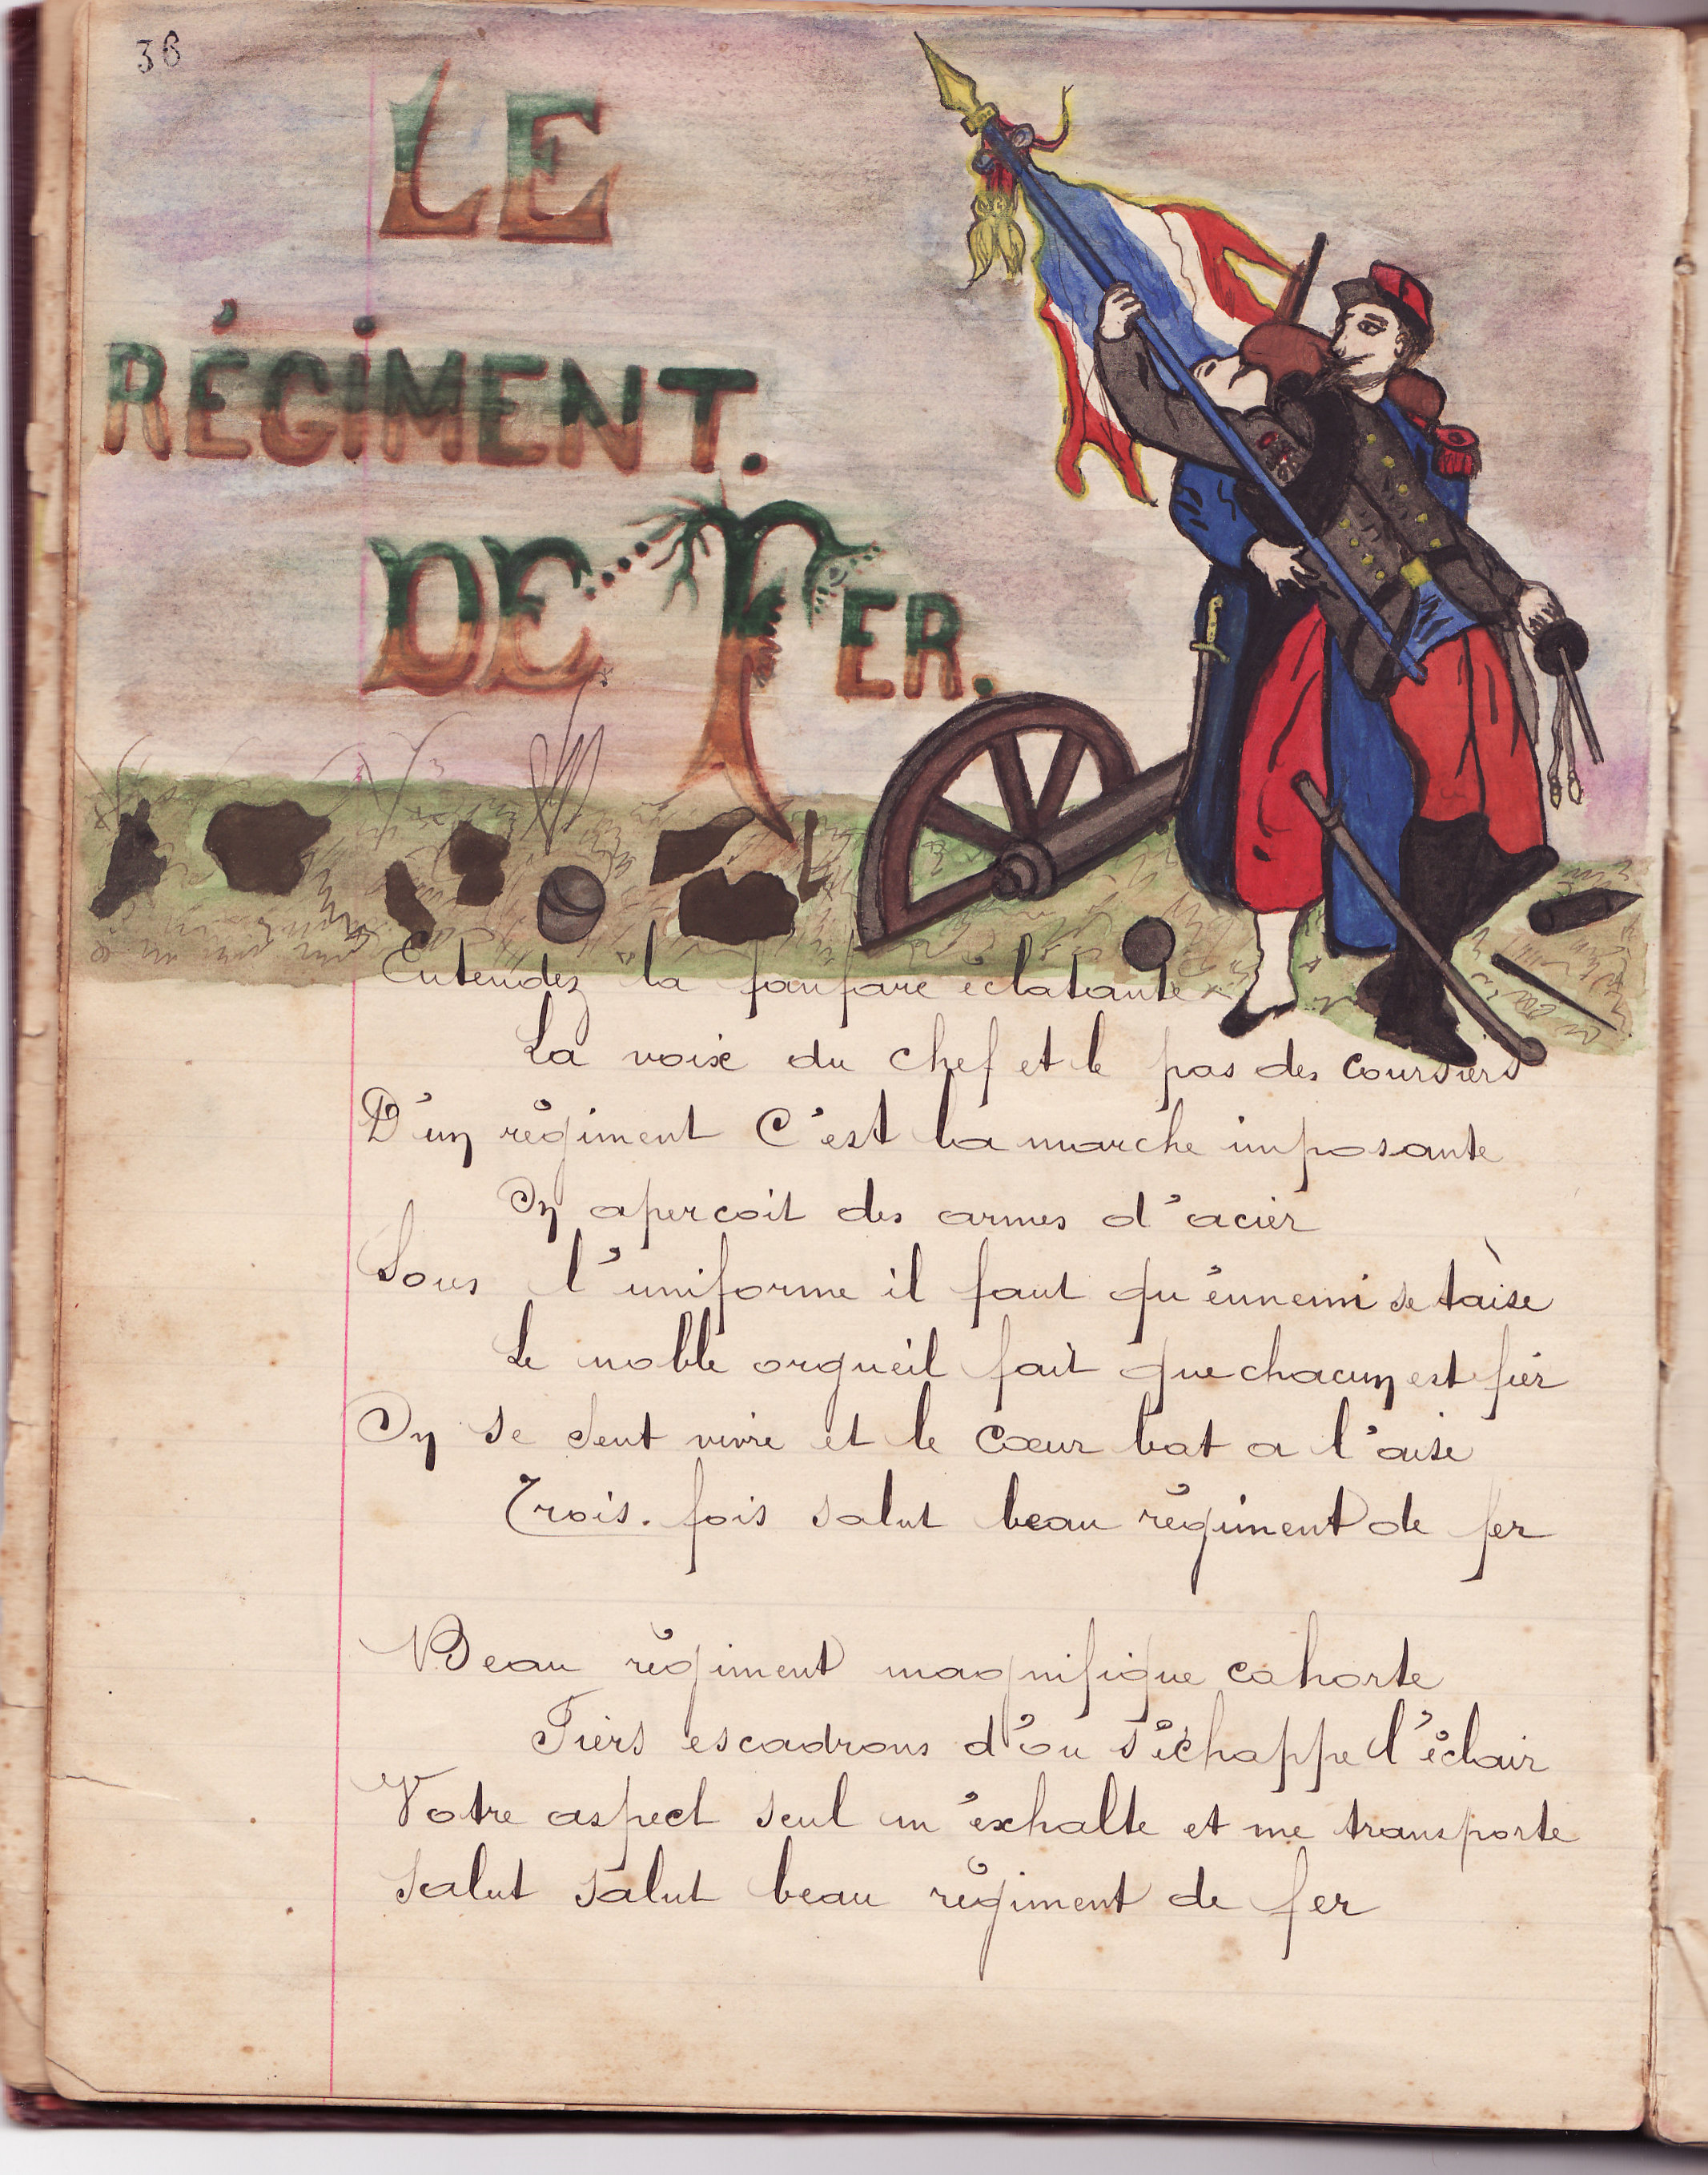 36
LE
RÉGIMENT.
DE FER.
Entendez la fanfare éclatante
La voix du chef et le pas des coursiers
D'un régiment C'est la marche imposante
On apercoit des armes d'acier
Sous l'uniforme il faut qu'ennemi se taise
Le noble orgueil fait que chacun est fier
On se sent vivre et le Cœur bat a l'aise
Trois. fois salut beau régiment de fer
Beau régiment magnifique cohorte
Fiers escadrons d'ou s'échappe l'éclair
Votre aspect seul m'exhalte et me transporte
Salut salut beau régiment de fer